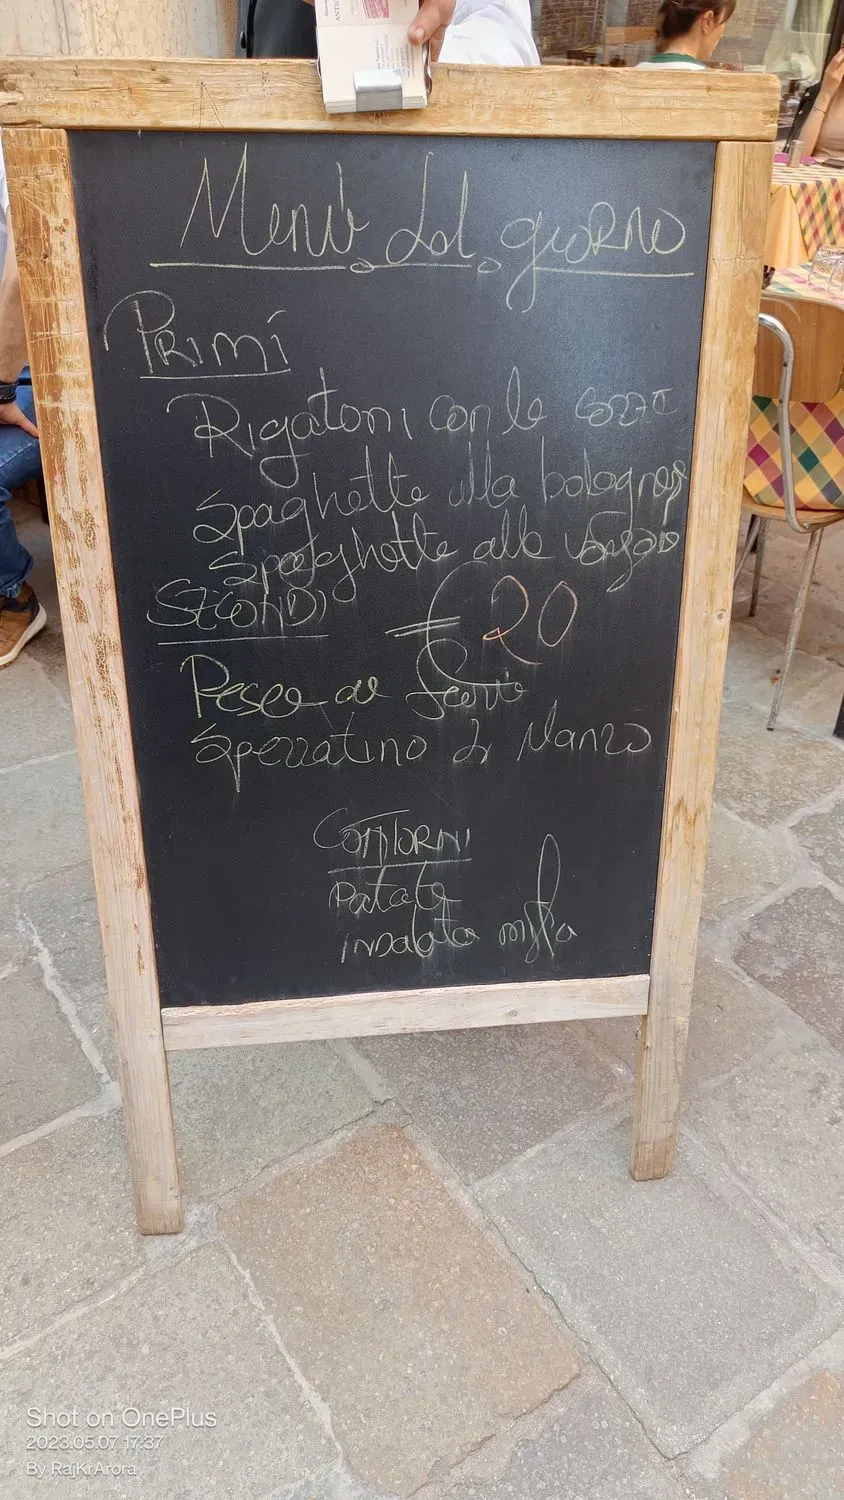 Menù del giorno
PRIMI
Rigatoni con le cozze
Spaghetti alla bolognese
Spaghetti alle vongole
SECONDI
€ 20
Pesce al forno
Spezzatino di Manzo
CONTORNI
Patate
insalata mista
Shot on OnePlus
2023.05.07 17:37
By RajKrArora